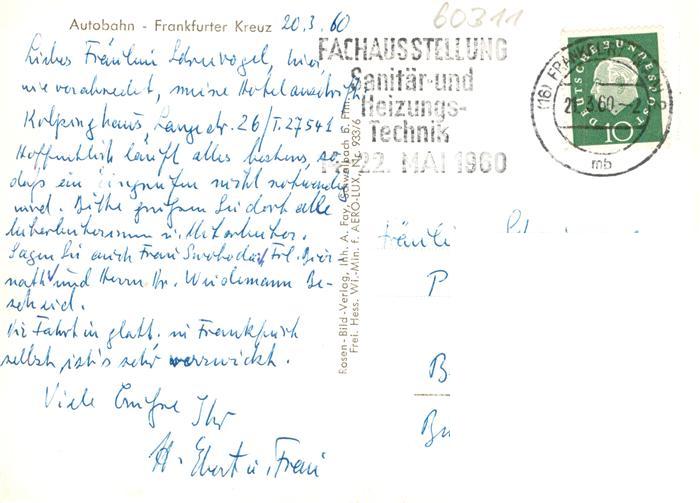 Autobahn - Frankfurter Kreuz 20.3.60
60311
Liebes Fräulein Lohrvogel, hier
wie verabredet, meine Hotelanschrift
Kolpinghaus, Langestr. 26/T.27541
Hoffentlich läuft alles bestens, so
daß ein eingreifen nicht notwendig
wird. Bitte grüßen Sie dort alle
Mitarbeiterinnen u. Mitarbeiter.
Sagen Sie auch Frau Swoboda, Frl. Bier
nath und Herrn Dr. Weidemann Be-
scheid.
Die Fahrt ging glatt. in Frankfurt
selbst ist's sehr verzwickt.
Viele Grüße Ihr
H. Ebert u. Frau
Rosen-Bild-Verlag, Inh. A. Fay, Schwalbach b. Ffm.
Frei. Hess. Wi.-Min. f. AERO-LUX, Nr. 933/6
FACHAUSSTELLUNG
Sanitär-und
Heizungs-
Technik
22. MAI 1960
(16) FRANKFURT
mb
DEUTSCHE BUNDESPOST
10
Fräulei
P
B